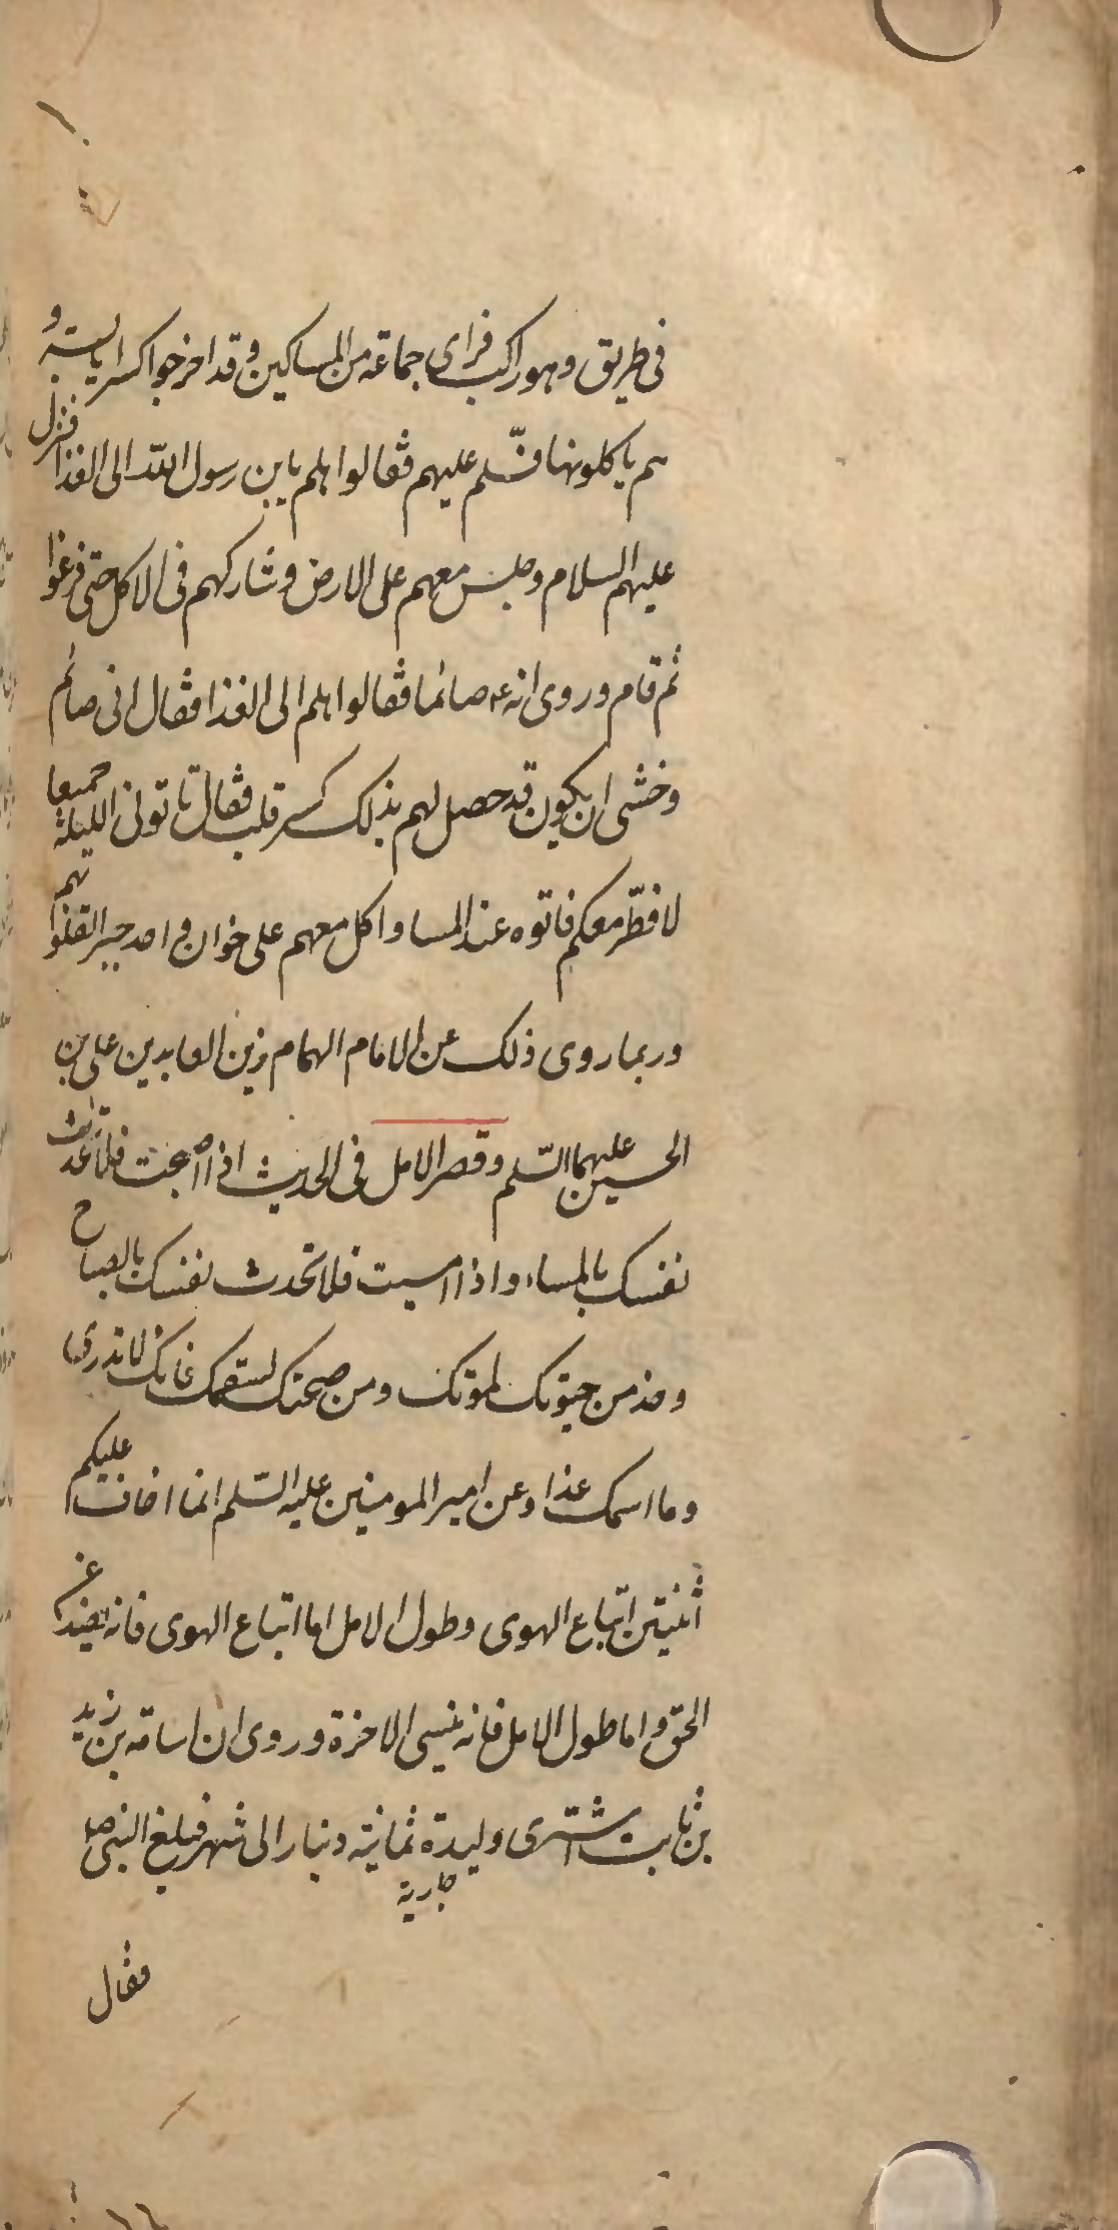 فى طريق وهو راكب فراى جماعة من المساكين وقد اخرجوا كسرا يابسة و
هم ياكلونها فسّلم عليهم فقالوا هلم يابن رسول اللّه الى الغذا فنزل
عليهم السلام وجلس معهم على الارض وشاركهم فى الاكل حتى فرغوا
ثم قام وروى انه ع صائما فقالوا هلم الى الغذا فقال انى صائم
وخشى ان يكون قد حصل لهم بذلك كسر قلب فقال تاتونى الليلة جميعا
لافطّر معكم فاتوه عند المسا واكل معهم على خوان واحد جبر القلوبهم
وربما روى ذلك عن الامام الهمام زين العابدين على بن
الحسين عليهما السّلم وقصر الامل فى الحديث اذا اصبحت فلا تحدث
نفسك بالمساء واذا امسيت فلا تحدث نفسك بالصباح
وخذ من حيوتك لموتك ومن صحتك لسقمك فانك لا تدرى
وما اسمك غدا وعن امير المومنين عليه السّلم انما اخاف عليكم
اثنيتن اتباع الهوى وطول الامل اما اتباع الهوى فانه يصد عن
الحق واما طول الامل فانه ينسى الاخرة وروى ان اسامة بن زيد
بن ثابت اشترى وليدة ثمانية دنبار الى شهر فبلغ النبى ص
جارية
فقال